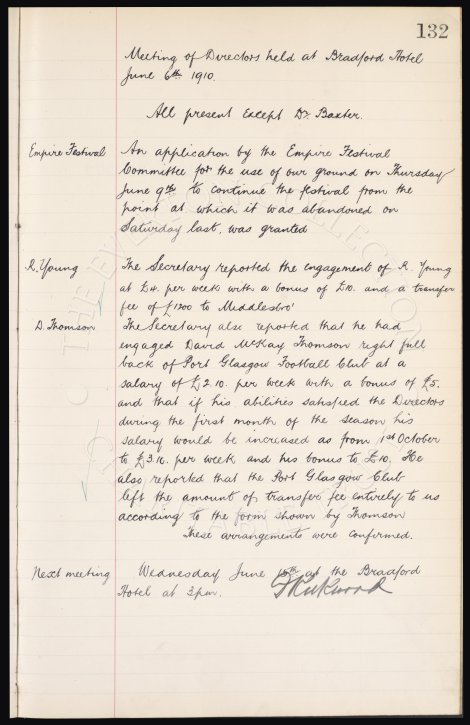 132
Meeting of Directors held at Bradford Hotel
June 6th 1910.
All present except Dr. Baxter.
Empire Festival An application by the Empire Festival
Committee for the use of our ground on Thursday
June 9th to continue the festival from the
point at which it was abandoned on
Saturday last, was granted
R. Young The Secretary reported the engagement of R. Young
at £4. per week with a bonus of £10. and a transfer
fee of £1200 to Middlesbro'
D. Thomson The Secretary also reported that he had
engaged David McKay Thomson right full
back of Port Glasgow Football Club at a
salary of £2.10. per week with a bonus of £5.
and that if his abilities satisfied the Directors
during the first month of the season his
salary would be increased as from 1st October
to £3.10. per week and his bonus to £10. He
also reported that the Port Glasgow Club
left the amount of transfer fee entirely to us
according to the form shown by Thomson
These arrangements were confirmed.
Next meeting Wednesday June 15th at the Bradford
Hotel at 3 p.m. Kirkwood